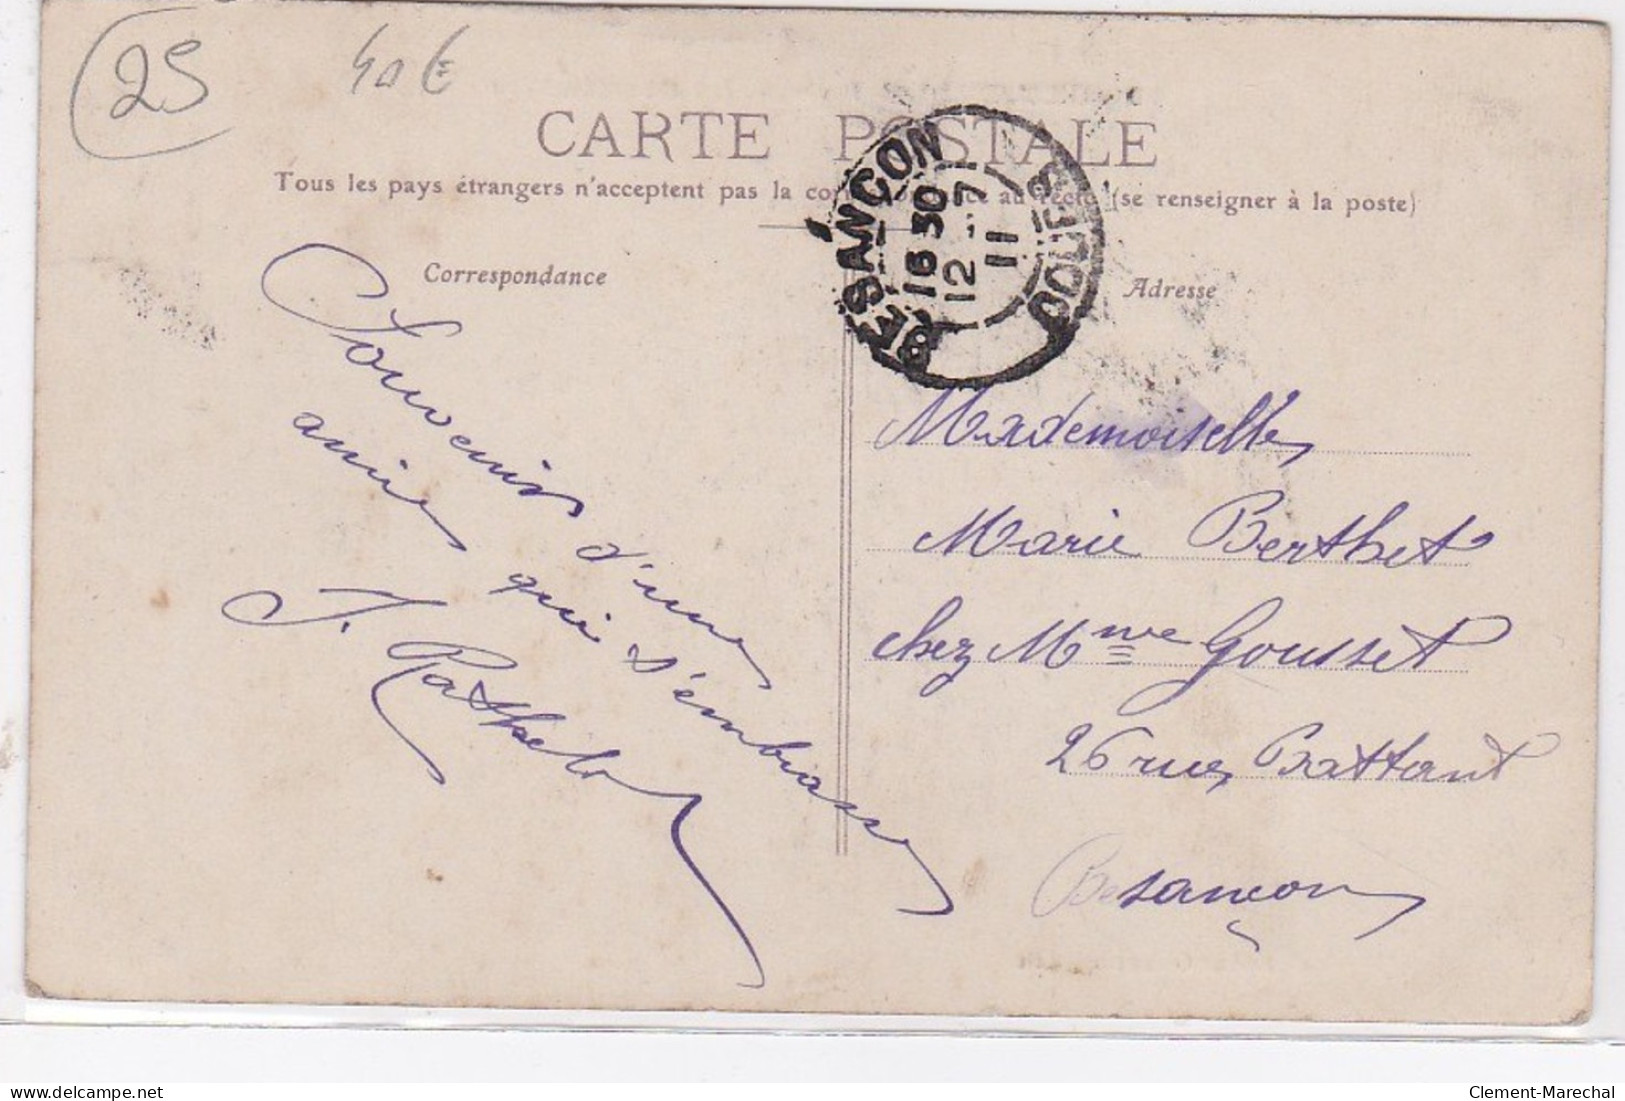 25
40 €
CARTE POSTALE
Tous les pays étrangers n'acceptent pas la correspondance au recto (se renseigner à la poste)
BESANÇON
16 30
12 - 7
11
DOUBS
Correspondance
Souvenirs d'une
amie qui s'embrasse
Adresse
Mademoiselle
Marie Berthet
chez Mme Gousset
26 rue Battant
Besançon
delcampe.net
Clement-Marechal